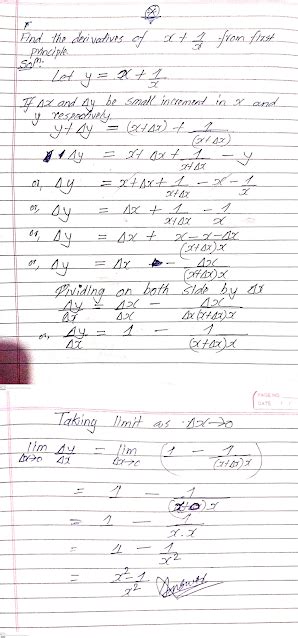 Find the derivatives of x + 1/x from first
principle.
Solⁿ:
Let y = x + 1/x
If Δx and Δy be small increment in x and
y respectively
y + Δy = (x+Δx) + 1/(x+Δx)
Δy = x + Δx + 1/(x+Δx) - y
or, Δy = x + Δx + 1/(x+Δx) - x - 1/x
or, Δy = Δx + 1/(x+Δx) - 1/x
or, Δy = Δx + (x - x - Δx)/((x+Δx)x)
or, Δy = Δx - Δx/((x+Δx)x)
Dividing on both side by Δx
Δy/Δx = Δx/Δx - Δx/(Δx(x+Δx)x)
or, Δy/Δx = 1 - 1/((x+Δx)x)
PAGE NO.
DATE
Taking limit as Δx→0
lim Δx→0 Δy/Δx = lim Δx→0 (1 - 1/((x+Δx)x))
= 1 - 1/((x+0)x)
= 1 - 1/(x.x)
= 1 - 1/x²
= (x²-1)/x² Answer